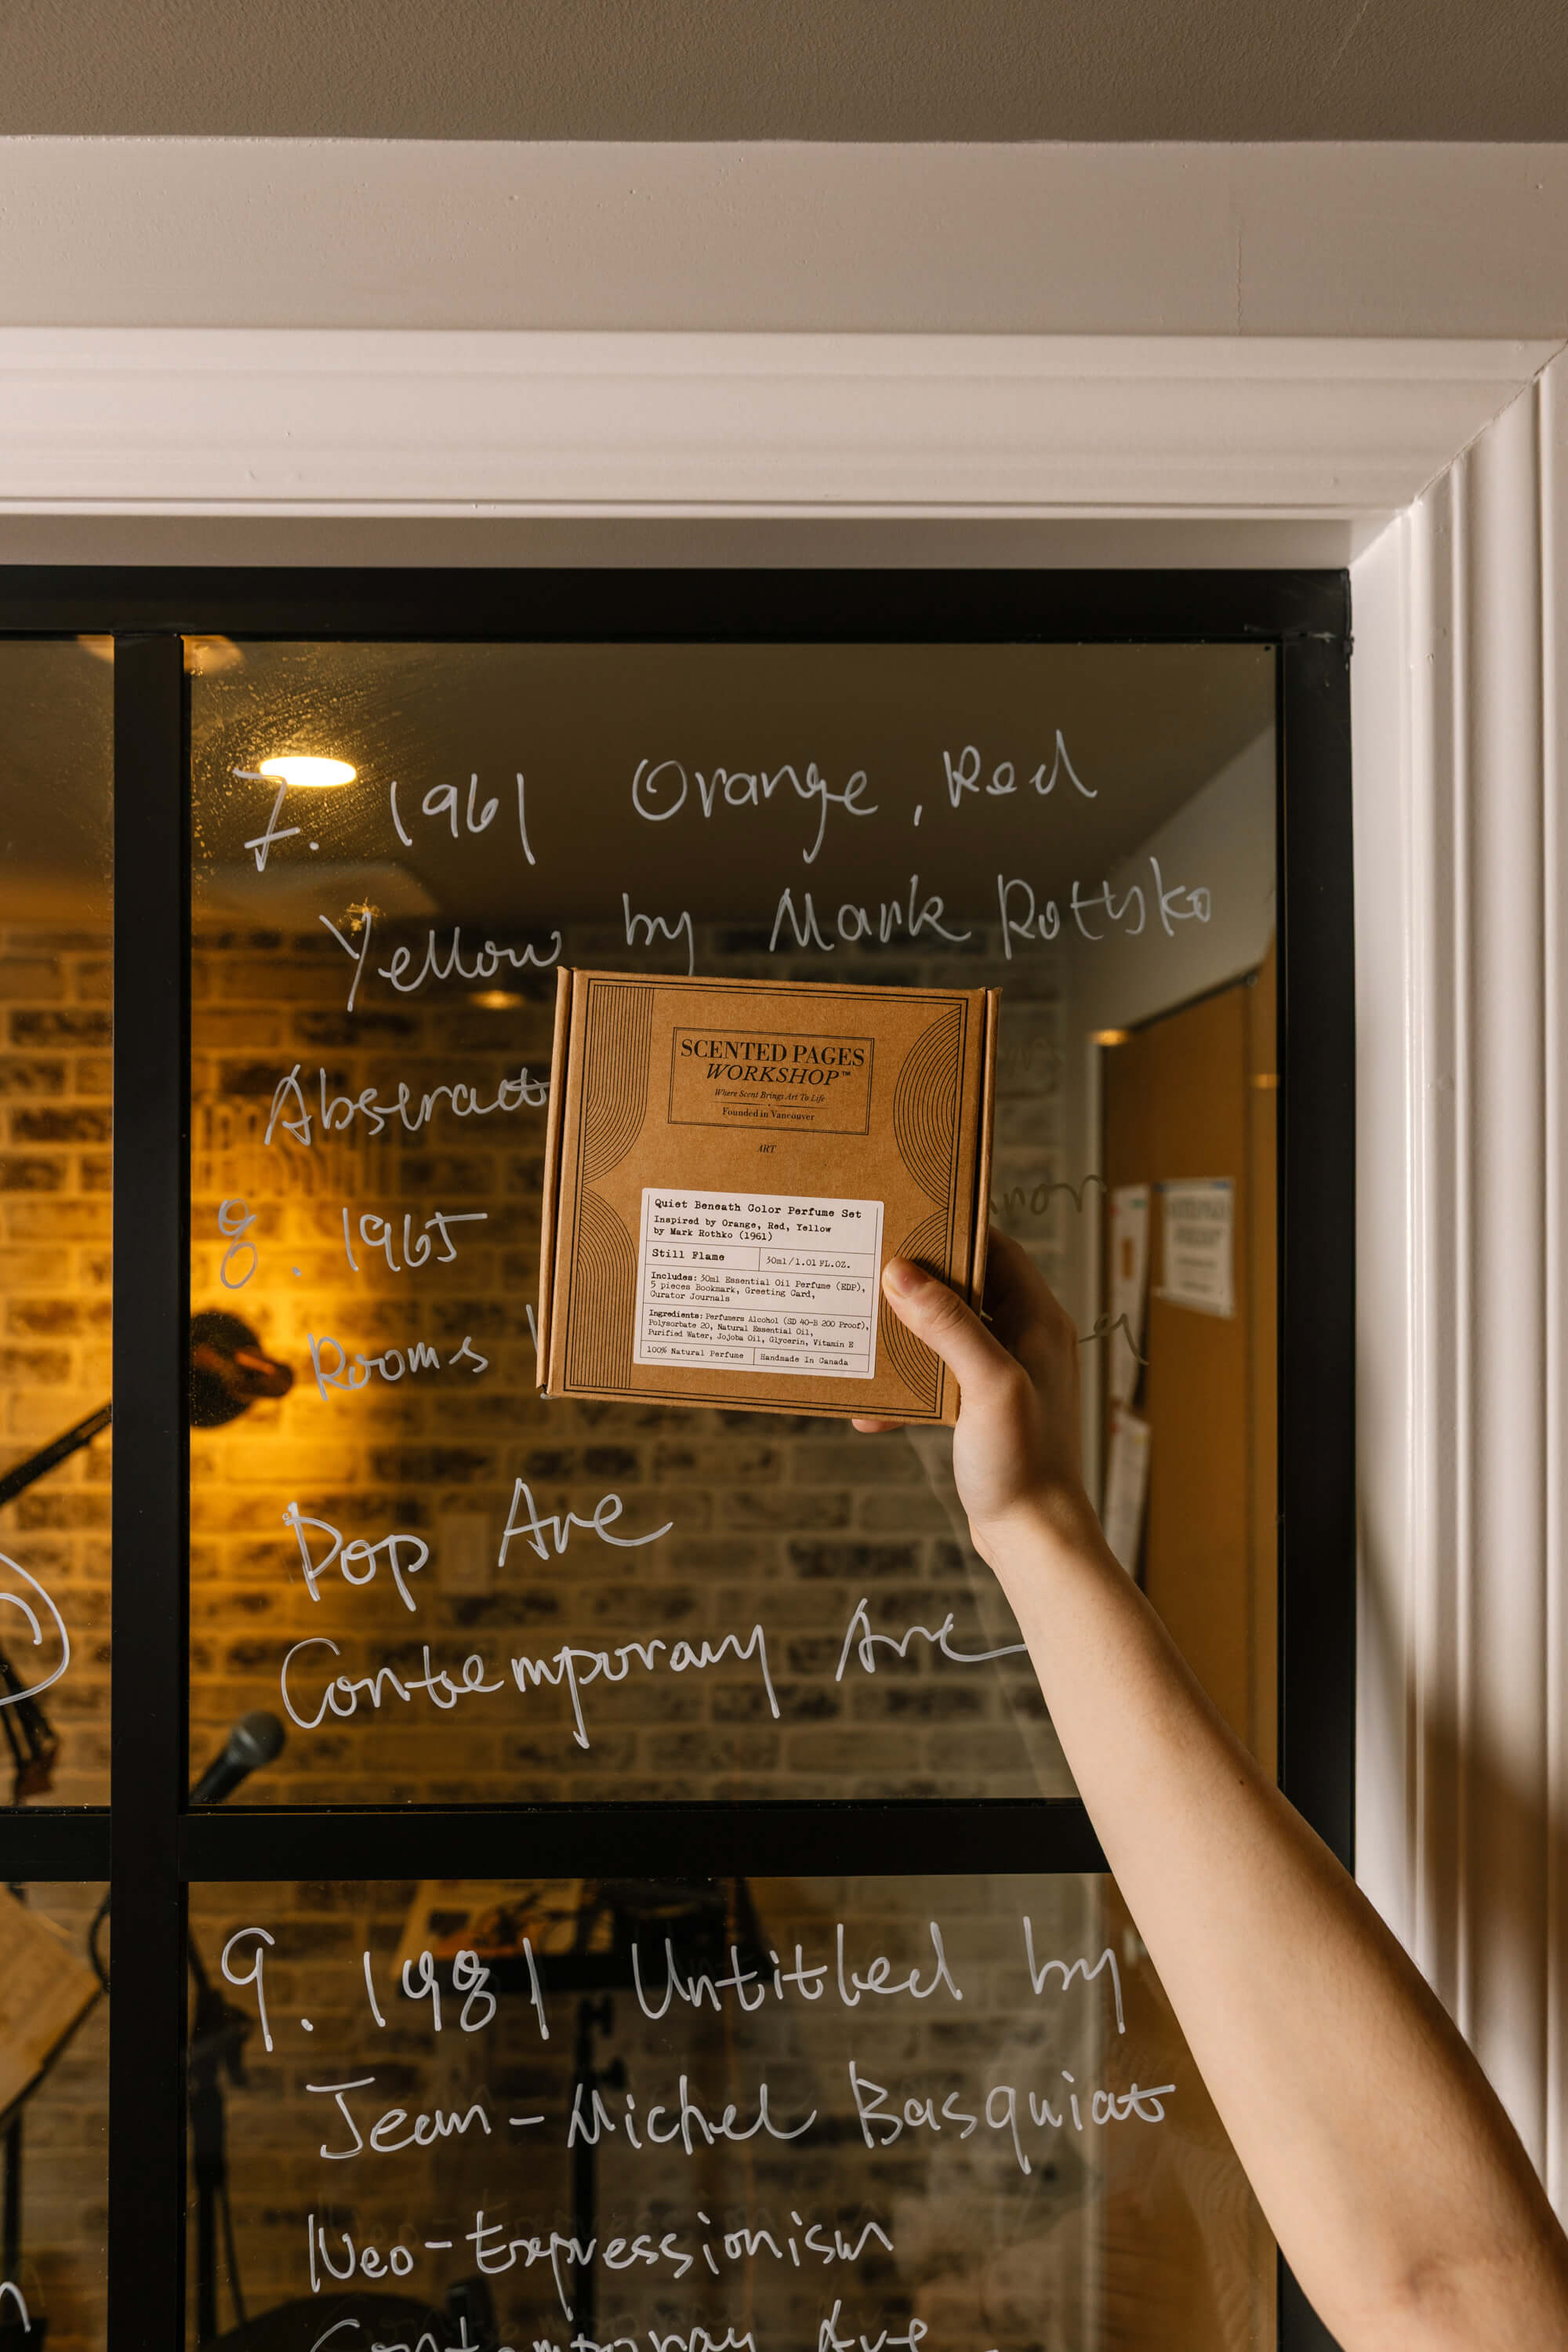 7. 1961 Orange, Red
Yellow by Mark Rothko
Abstract
SCENTED PAGES
WORKSHOP™
Where Scent Brings Art To Life
Founded in Vancouver
ART
Quiet Beneath Color Perfume Set
Inspired by Orange, Red, Yellow
by Mark Rothko (1961)
Still Flame
30ml/1.01 FL.OZ.
Includes: 30ml Essential Oil Perfume (EDP),
5 pieces Bookmark, Greeting Card,
Curator Journals
Ingredients: Perfumers Alcohol (SD 40-B 200 Proof),
Polysorbate 20, Natural Essential Oil,
Purified Water, Jojoba Oil, Glycerin, Vitamin E
100% Natural Perfume
Handmade In Canada
8. 1965
Rooms
Pop Art
Contemporary Art
9. 1981 Untitled by
Jean-Michel Basquiat
Neo-Expressionism
Contemporary Art